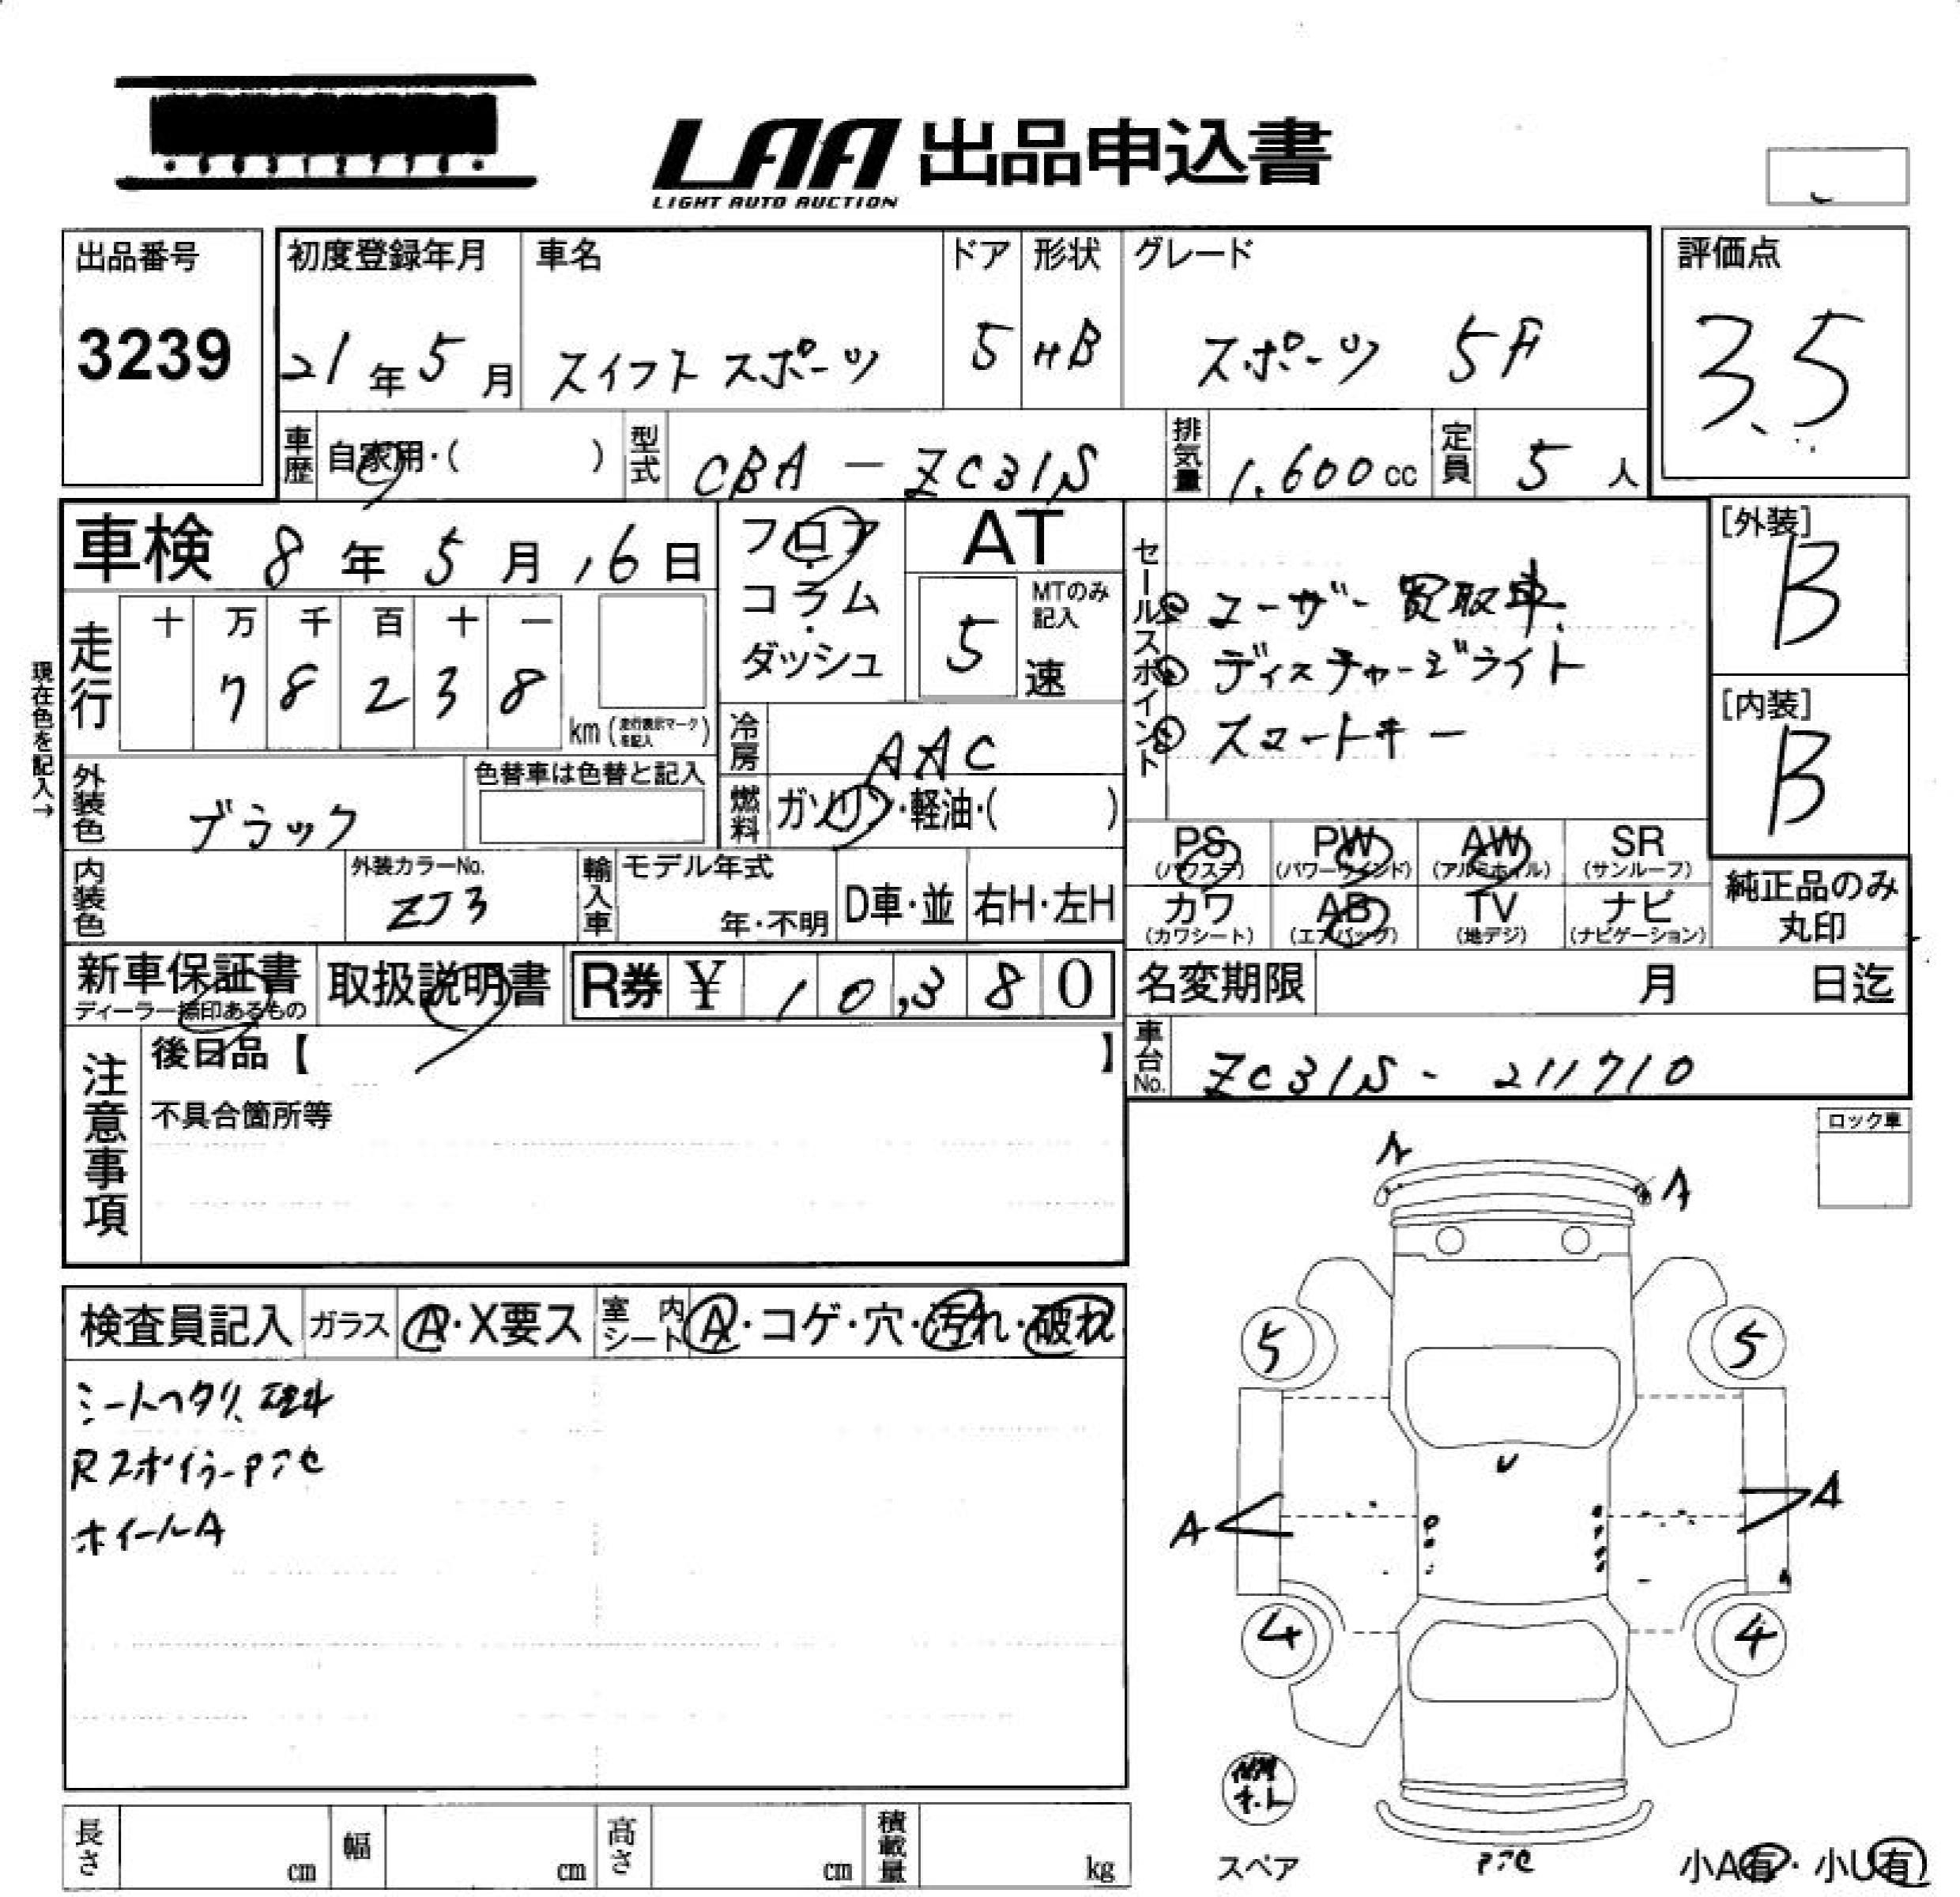 LAA 出品申込書
LIGHT AUTO AUCTION
出品番号 初度登録年月 車名 ドア 形状 グレード 評価点
3239 21年5月 スイフトスポーツ 5 HB スポーツ 5F 3.5
車歴 自家用・( ) 型式 CBA-ZC31S 排気量 1.600cc 定員 5人
車検 8年5月16日 フロア・コラム・ダッシュ AT
MTのみ記入 5速
現在色を記入→
走行 十 万 千 百 十 一
7 8 2 3 8 km (走行表示マークを記入)
冷房 AAC
外装色 ブラック 色替車は色替と記入
燃料 ガソリン・軽油・( )
内装色 外装カラーNo. ZJ3 輸入車 モデル年式 年・不明 D車・並 右H・左H
セールスポイント
ユーザー買取車
ディスチャージライト
スマートキー
[外装] B
[内装] B
PS (パワステ) PW (パワーウインド) AW (アルミホイル) SR (サンルーフ)
カワ (カワシート) AB (エアバッグ) TV (地デジ) ナビ (ナビゲーション)
純正品のみ丸印
新車保証書 取扱説明書 R券 ¥ 10,380
ディーラー捺印あるもの
名変期限 月 日迄
車台No. ZC31S-211710
注意事項
後日品【 】
不具合箇所等
ロック車
検査員記入 ガラス A・X要ス 室内シート A・コゲ・穴・汚れ・破れ
シートヘタリ
RスポイラーPテC
ホイールA
A A
5 5
U
A A
4 4
スペア
PテC
小A有・小U有
長さ cm 幅 cm 高さ cm 積載量 kg